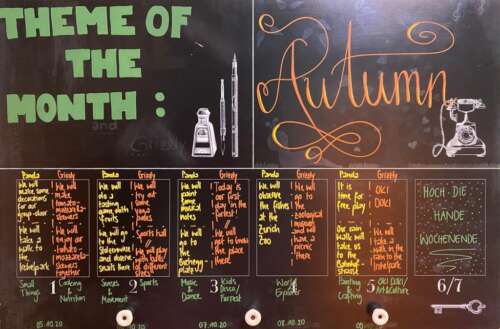 THEME OF
THE
MONTH:
Autumn
Panda
We will
make some
decorations
for our
group-door
We will
take a
walk to
the
Irchelpark
Grizzly
We will
make
tomato-
mozzarella-
skewers
We will
enjoy our
tomato-
mozzarella-
skewers
together
Small
Things
1
Cooking
&
Nutrition
Panda
We will
do a
tasting
game with
fruits
We will go
to the
and observe
small
Grizzly
We will
try out
some
yoga
Sports hall
We will
play with
balls of
different
sizes
Senses &
Movement
2
Sports
Panda
We will
paint
some
musical
notes
We will
go to
the
platz
Grizzly
Today is
our first
day in the
forest!
We will
get to
know the
place
Music
&
Dance
3
Kids
Disco/
Forrest
Panda
We will
observe
the
at the
Zurich
Zoo
Grizzly
We will
go to
the
zoological
museum
and will
have a
picnic
there
4
World
Explorer
Panda
It is
time for
free play
Our rain
walk will
take us
to the
Bahnhof-
strasse
Grizzly
Oki
Doki
We will
take a
walk in the
rain to the
Irchelpark
Painting
&
Crafting
5
Oki Doki/
Horticulture
HOCH DIE
HÄNDE
WOCHENENDE
6/7
05.10.20
07.10.20
08.10.20